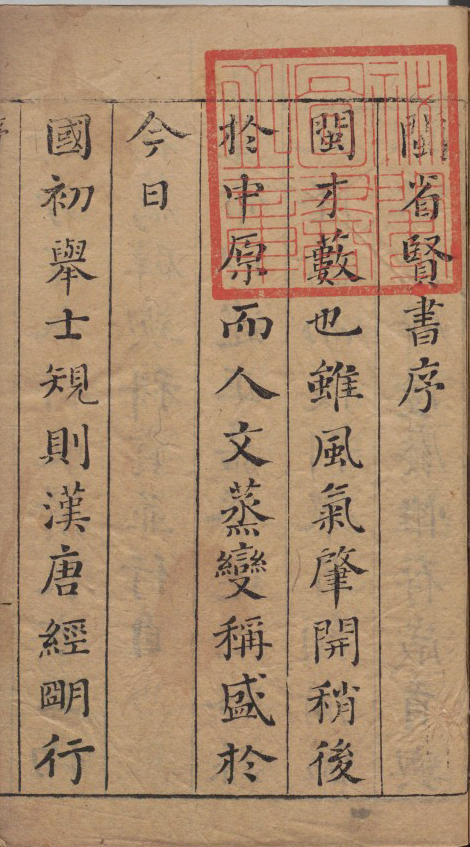 閩省賢書序
閩才藪也雖風氣肇開稍後
於中原而人文蒸變稱盛於
今日
國初舉士䂓則漢唐經明行